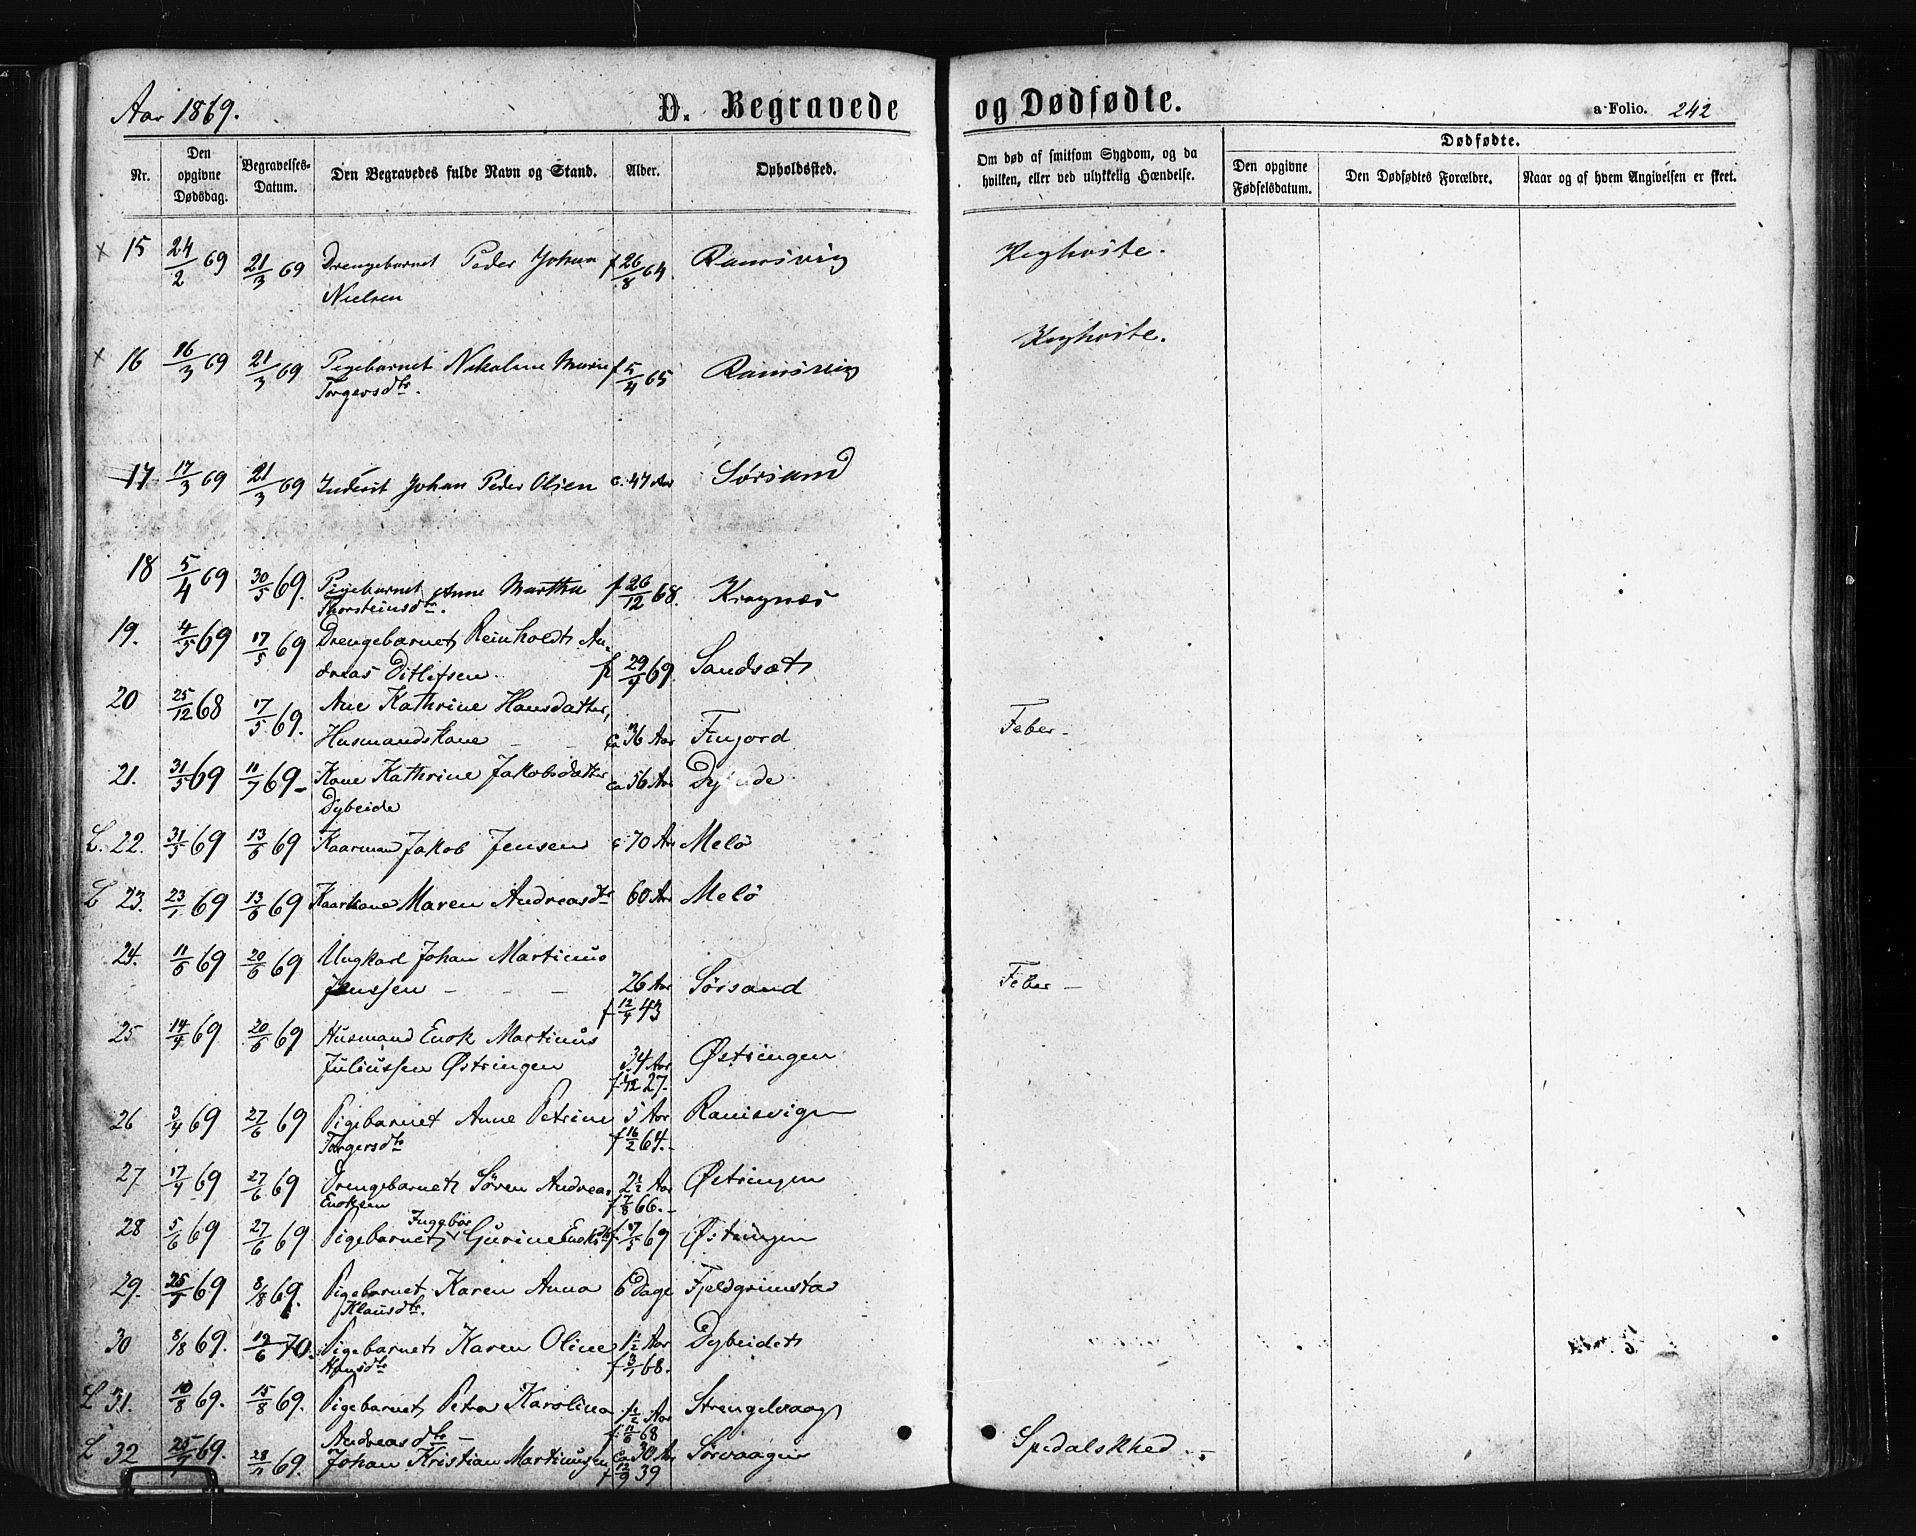 Aar 1869.
D. Begravede og Dødfødte.
a Folio. 242
Nr.
Den opgivne Dødsdag.
Begravelses-Datum.
Den Begravedes fulde Navn og Stand.
Alder.
Opholdssted.
Om død af smitsom Sygdom, og da hvilken, eller ved ulykkelig Hændelse.
Dødfødte.
Den opgivne Fødselsdatum.
Den Dødfødtes Forældre.
Naar og af hvem Angivelsen er skeet.
x 15 24/2 69 21/3 69 Drengebarnet Peder Johan f 26/8 64 Ramsvig Kighoste.
Nielsen
x 16 16/3 69 21/3 69 Pigebarnet Nikoline Marie f 5/4 65 Ramsvig Kighoste.
Torgersdtr.
17 17/3 69 21/3 69 Inderst Johan Peder Olsen c. 47 Aar Sørsand
18 5/4 69 30/5 69. Pigebarnet Anne Martha f 26/12 68. Kragnæs
Thorsteinsdtr.
19. 4/5 69 17/5 69 Drengebarnet Reinholdt An-
dreas Ditlefsen f 29/4 69. Sandsæt
20 25/12 68 17/5 69. Ane Kathrine Hansdatter,
Husmandskone - - ca 36 Aar Finjord Feber -
21. 31/5 69 11/7 69 - Kone Kathrine Jakobsdatter ca 56 Aar
Dybeide
L. 22. 31/5 69 13/6 69 Kaarmand Jakob Jensen c 70 Aar Melö
L 23. 23/1 69 13/6 69 Kaarkone Maren Andreasdtr 60 Aar Melö
24. 11/6 69 20/6 69 Ungkarl Johan Martinus
Jenssen - - - 26 Aar Sørsand Feber -
f 12/4 43
25 14/4 69 20/6 69 Husmand Enok Martinus
Juliussen Østringen 34 Aar Østringen
27.
26 3/4 69 27/6 69 Pigebarnet Anne Petrine 5 Aar Ramsvigen
Torgersdtr f 16/2 64. -
27 17/4 69 27/6 69 Drengebarnet Sören Andreas 2½ Aar Østringen
Enoksen f 7/8 66. -
Ingebor
28 5/6 69 27/6 69 Pigebarnet Gurine Enoksdtr f 17/5 69 Østringen
29. 25/7 69 8/8 69. Pigebarnet Karen Anna 6 Dage Fjeldgrimstad
Klausdtr.
30 8/8 69. 12/6 70. Pigebarnet Karen Oline 1½ Aar Dybeidet
Hansdtr f 3/1 68.
L 31. 10/8 69. 15/8 69. Pigebarnet Petra Karolina 1½ Aar Strengelvaag
Andreasdtr - f. 11/6 68
L 32 25/7 69. 28/11 69. Johan Kristian Martinussen ca 30 Aar Sørvaagen Spedalskhed. -
f 12/9 39